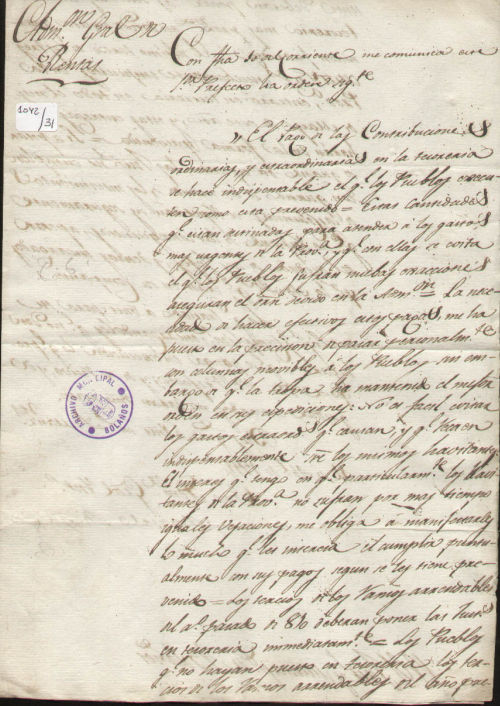 Adm.on Gral de
Rentas
1042/31
Con fha 30 del corriente me comunica este
Sor Prefecto la orden sigte
"El Pago de las Contribuciones
ordinarias y extraordinarias en la tesoreria
se hace indispensable el qe los Pueblos execu-
ten como esta prevenido = Estas cantidades
qe estan destinadas para atender a los gastos
mas urgentes de la Prova, y qe con ellas se evita
el qe los Pueblos sufran muchas exacciones
aseguran el en la Admon La nece-
sidad de hacer efectivos estos pagos, me ha
puesto en la precision de pasar personalmte
con columnas mobiles a los Pueblos, sin em-
bargo de qe la tropa ha mantenido el mejor
orden en sus expediciones. No es facil evitar
los gastos qe causan, y qe
indispensablemente los mismos havitantes
El interes qe tengo en qe particularmte los havi-
tantes de la Prova no sufran por mas tiempo
iguales vejaciones, me obliga a manifestarles
lo mucho qe les interesa el cumplir puntu-
almente con sus pagos segun se les tiene pre-
venido = Los tercios de los ramos arrendables
del aº pasado de 810 deberan poner las Justs
en tesoreria immediatamte = Los Pueblos
qe no hayan puesto en tesoreria los ter-
cios de los ramos arrendables del año pa-
ARCHIVO MUNICIPAL
BOLAÑOS